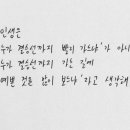 인생은
누가 결승선까지 빨리 가느냐'가 아니
누가 결승선까지 가는 길에
예쁜 것을 많이 보느냐'라고 생각해